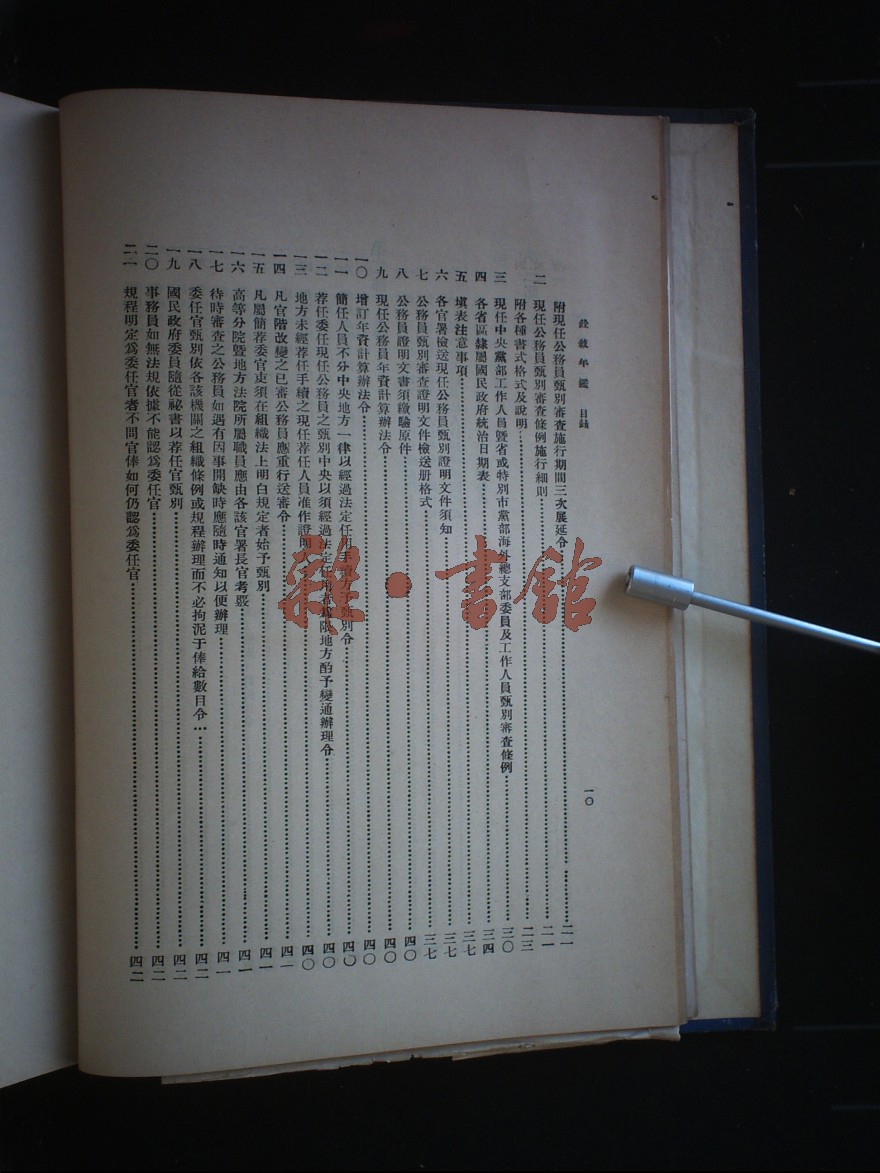 銓敘年鑑 目錄
一〇
附現任公務員甄別審查施行期間三次展延令……二一
二 現任公務員甄別審查條例施行細則……二一
附各種書式格式及說明……二三
三 現任中央黨部工作人員暨省或特別市黨部海外總支部委員及工作人員甄別審查條例……三〇
四 各省區隸屬國民政府統治日期表……三四
五 填表注意事項……三七
六 各官署檢送現任公務員甄別證明文件須知……三七
七 公務員甄別審查證明文件檢送册格式……三七
八 公務員證明文書須繳驗原件……四〇
九 現任公務員年資計算辦法令……四〇
一〇 增訂年資計算辦法令……四〇
一一 簡任人員不分中央地方一律以經過法定任用手續方予甄別令……四〇
一二 荐任委任現任公務員之甄別中央以須經過法定任用者為限地方酌予變通辦理令……四〇
一三 地方未經荐任手續之現任荐任人員准作證明……四〇
一四 凡官階改變之已審公務員應重行送審令……四一
一五 凡屬簡荐委官吏須在組織法上明白規定者始予甄別……四一
一六 高等分院暨地方法院所屬職員應由各該官署長官考覈……四一
一七 待時審查之公務員如遇有因事開缺時應隨時通知以便辦理……四一
一八 委任官甄別依各該機關之組織條例或規程辦理而不必拘泥于俸給數目令……四二
一九 國民政府委員隨從祕書以荐任官甄別……四二
二〇 事務員如無法規依據不能認爲委任官……四二
二一 規程明定爲委任官者不問官俸如何仍認爲委任官……四二
㮤·書館